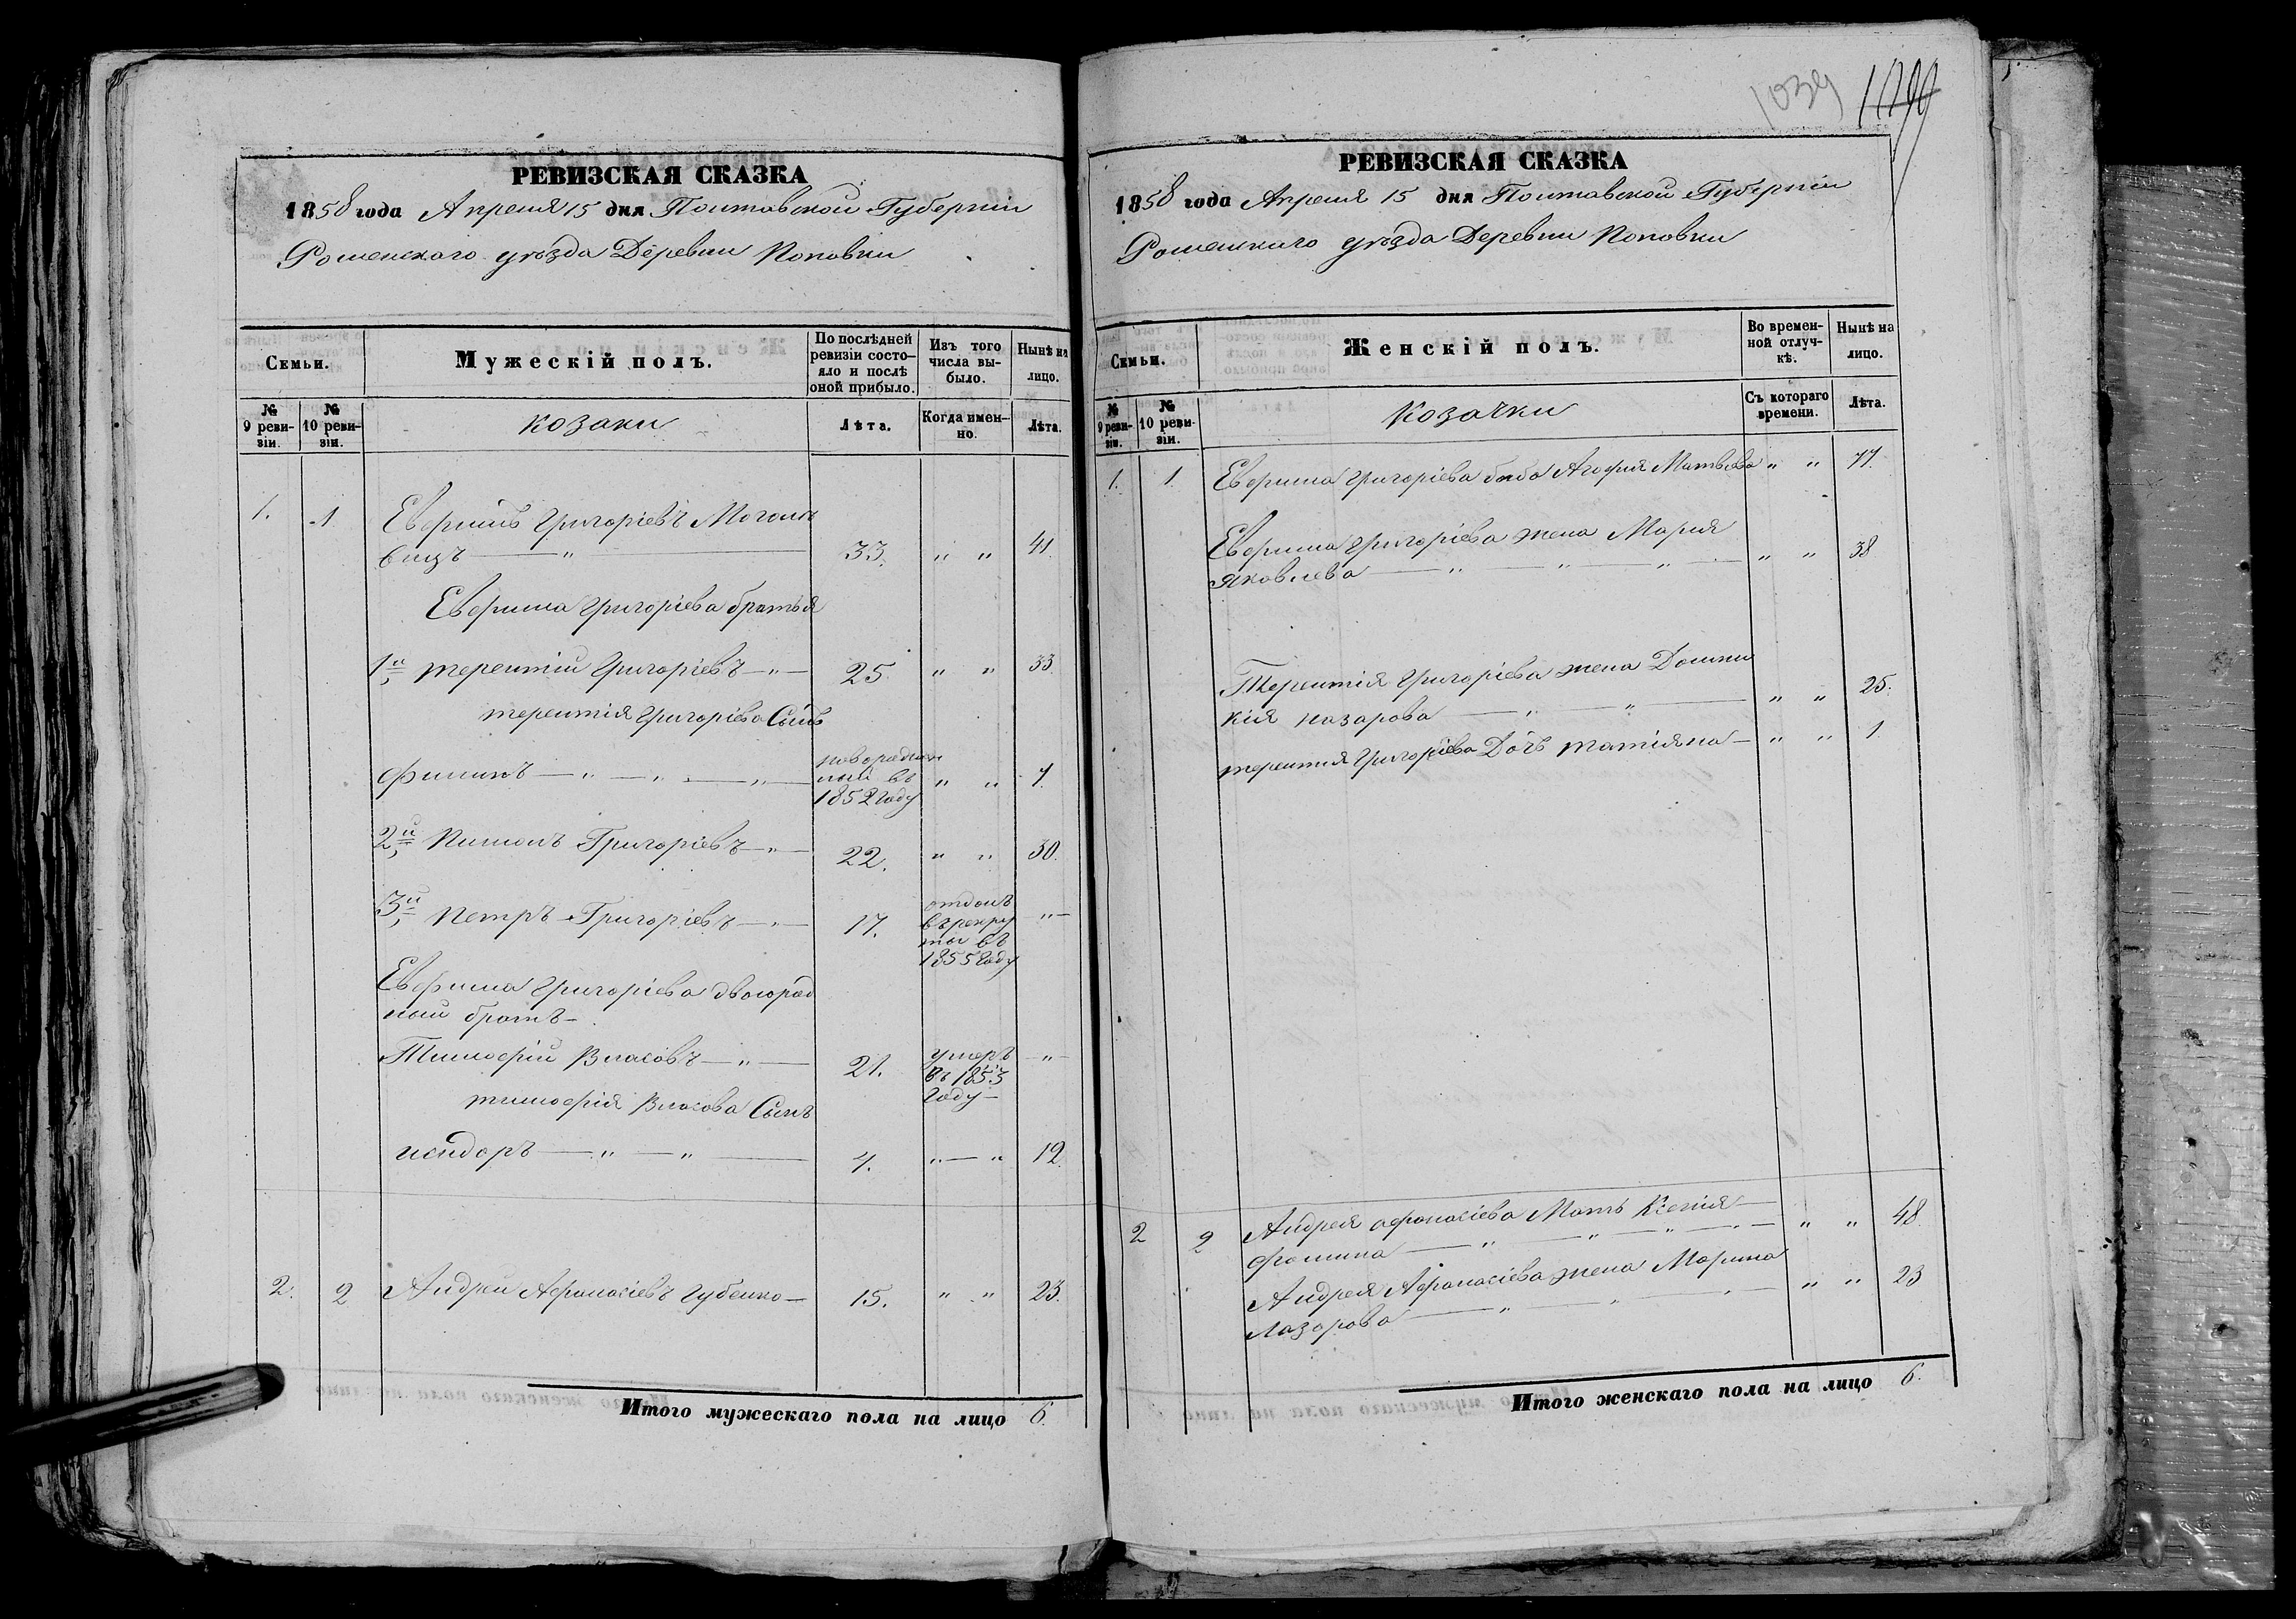 РЕВИЗСКАЯ СКАЗКА
1858 года Апреля 15 дня Полтавской Губерніи
Роменского уѣзда Деревни Поповки
Семьи.
Мужескій полъ.
По послѣдней ревизіи состояло и послѣ оной прибыло.
Изъ того числа выбыло.
Нынѣ на лицо.
№ 9 ревизіи.
№ 10 ревизіи.
козаки
Лѣта.
Когда именно.
Лѣта.
1. 1 Евфимъ Григоріевъ
вецъ — " — 33. " " 41.
Евфима Григоріева братья
1й Терентій Григоріевъ — " — 25. " " 33.
терентія Григоріева Сынъ
филипъ — " — " — " — новорожден
ный въ " "
1852 году
2й Пименъ Григоріевъ — " — 22. " " 30.
3й Петръ Григоріевъ — " — 17. отданъ " —
въ рекру
ты въ
1855 году
Евфима Григоріева двоюрод
ный братъ —
Тимофій Власовъ — " — 21. умеръ " —
въ 1853
году —
тимофія Власова Сынъ
исидоръ — " — " — 4. " — " 12.
2. 2 Андрей Афанасіевъ Губенко — 15. " " 23.
Итого мужескаго пола на лицо 6.
1039
РЕВИЗСКАЯ СКАЗКА
1858 года Апреля 15 дня Полтавской Губерніи
Роменскаго уѣзда Деревни Поповки
Семьи.
Женскій полъ.
Во временной отлучкѣ.
Нынѣ на лицо.
№ 9 ревизіи.
№ 10 ревизіи.
Козачки
Съ котораго времени.
Лѣта.
1. 1 Евфима Григоріева баба Агафия Матвѣева " " 77.
Евфима Григоріева жена Мария
Яковлева — " — " — " — " " 38
Терентія Григоріева жена Домни
кія назарова — " — " — " " 25.
терентия Григоріева Дочь татіяна — " " 1.
2 2 Андрея афанасіева Мать Ксенія
фомина — " — " — " — " " 48.
Андрея Афанасіева жена Марина
Лазорова — " — " " 23
Итого женскаго пола на лицо 6.